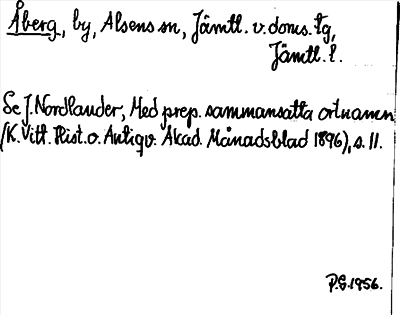 Åberg, by, Alsens sn, Jämtl. v. doms. tg,
Jämtl. l.
Se J. Nordlander, Med prep. sammansatta ortnamn
(K. Vitt. Hist. o. Antiqv. Akad. Månadsblad 1896), s. 11.
P.G. 1956.